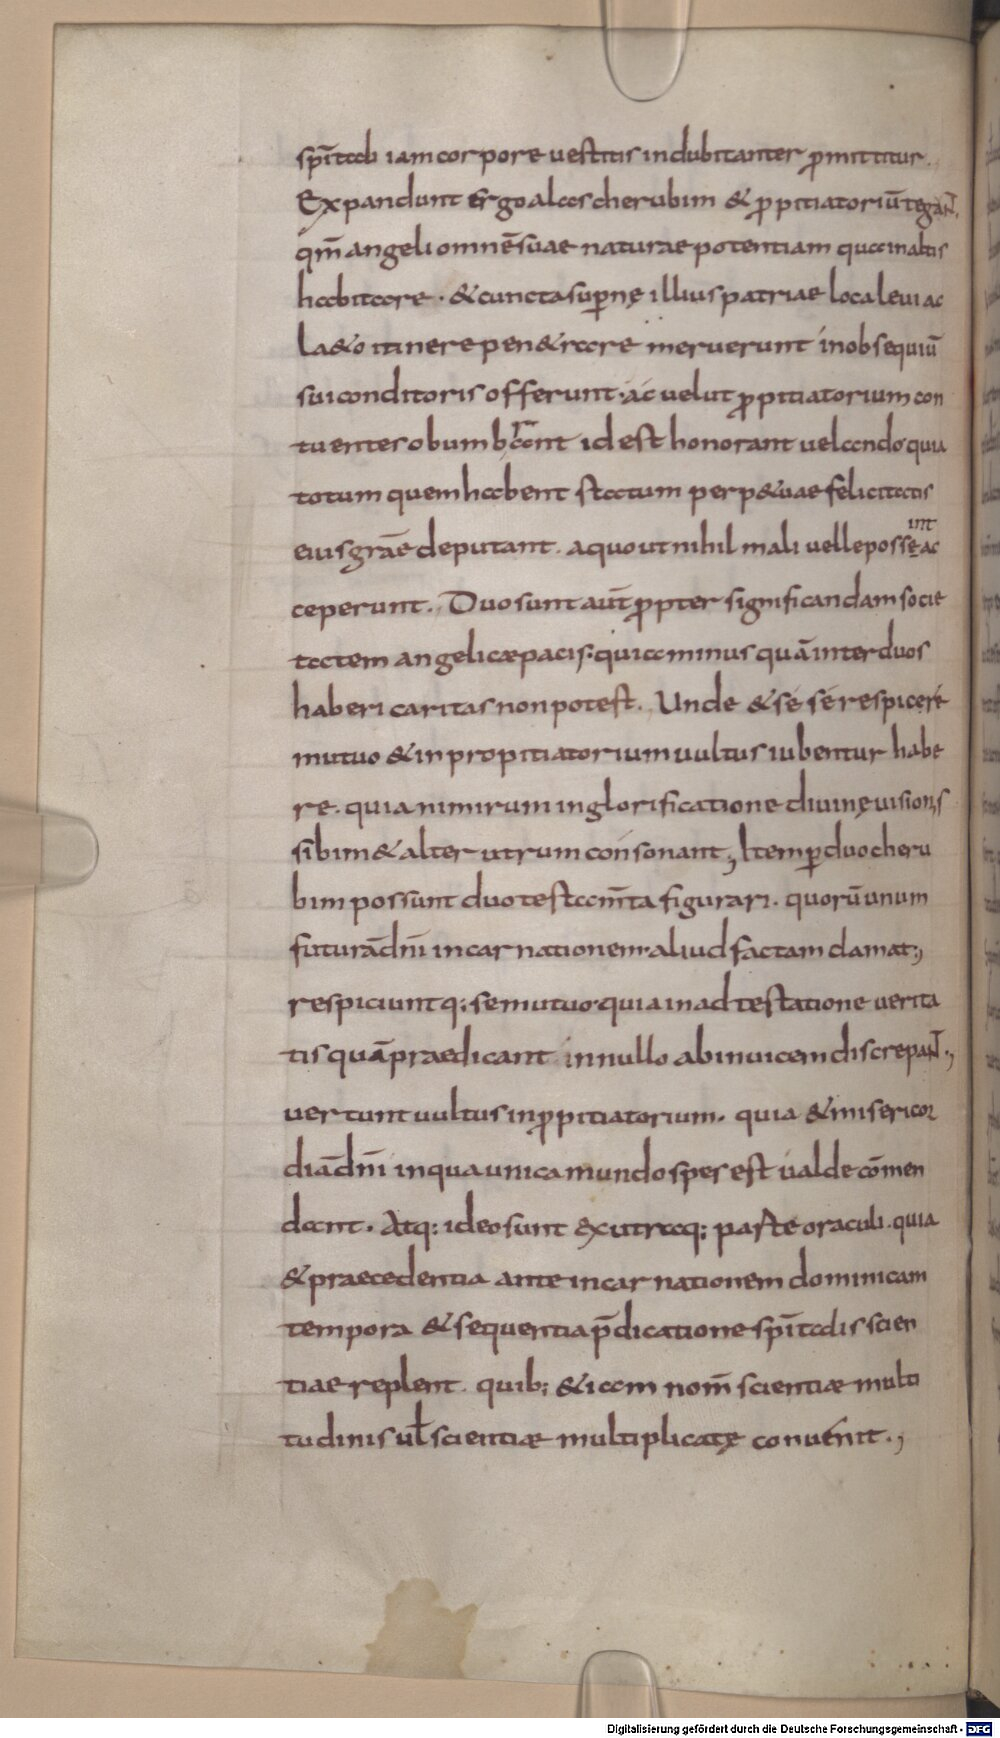 sp̄italı iam corpore uestitis indubitanter ꝓmittitur.
Expandunt Ergo alas cherubim & ꝓpitiatoriū tegant.
qm̄ angeli omnē suae naturae potentiam qua in altis
habitare · & cuncta suꝑnę illius patriae loca leui ac
la&o itinere pen&rare meruerunt in obsequiū
sui conditoris offerunt · ac uelut ꝓpitiatorium con
tuentes obumbrant id est honorant uelando quia
totum quem habent statum perp&uae felicitatis
eius grāe deputant. a quo ut nihil mali uelle possint ac
ceperunt. Duo sunt aūt ꝓpter significandam socie
tatem angelicae pacis · quia minus quā inter duos
haberi caritas non potest. Unde & se se respicere
mutuo & in propitiatorium uultus iubentur habe
re. quia nimirum in glorificatione diuinę uisionis
sibim& alterutrum consonant, Item ꝑ duo cheru
bim possunt duo testam̄ta figurari. quorū unum
futurā dn̄i incarnationem · aliud factam clamat.,
respiciuntq; se mutuo · quia in adtestatione uerita
tis quā praedicant in nullo ab inuicem discrepant.,
uertunt uultus in ꝓpitiatorium. quia & misericor
diā dn̄i in qua unica mundo spes est ualde cōmen
dant. Atq; ideo sunt ex utraq; parte oraculi. quia
& praecedentia ante incarnationem dominicam
tempora & sequentia p̄dicatione sp̄italis scien
tiae replent. quib; & iam nom̄ scientiae multi
tudinis ul̄ scientiae multiplicatę conuenit.,
Digitalisierung gefördert durch die Deutsche Forschungsgemeinschaft - DFG